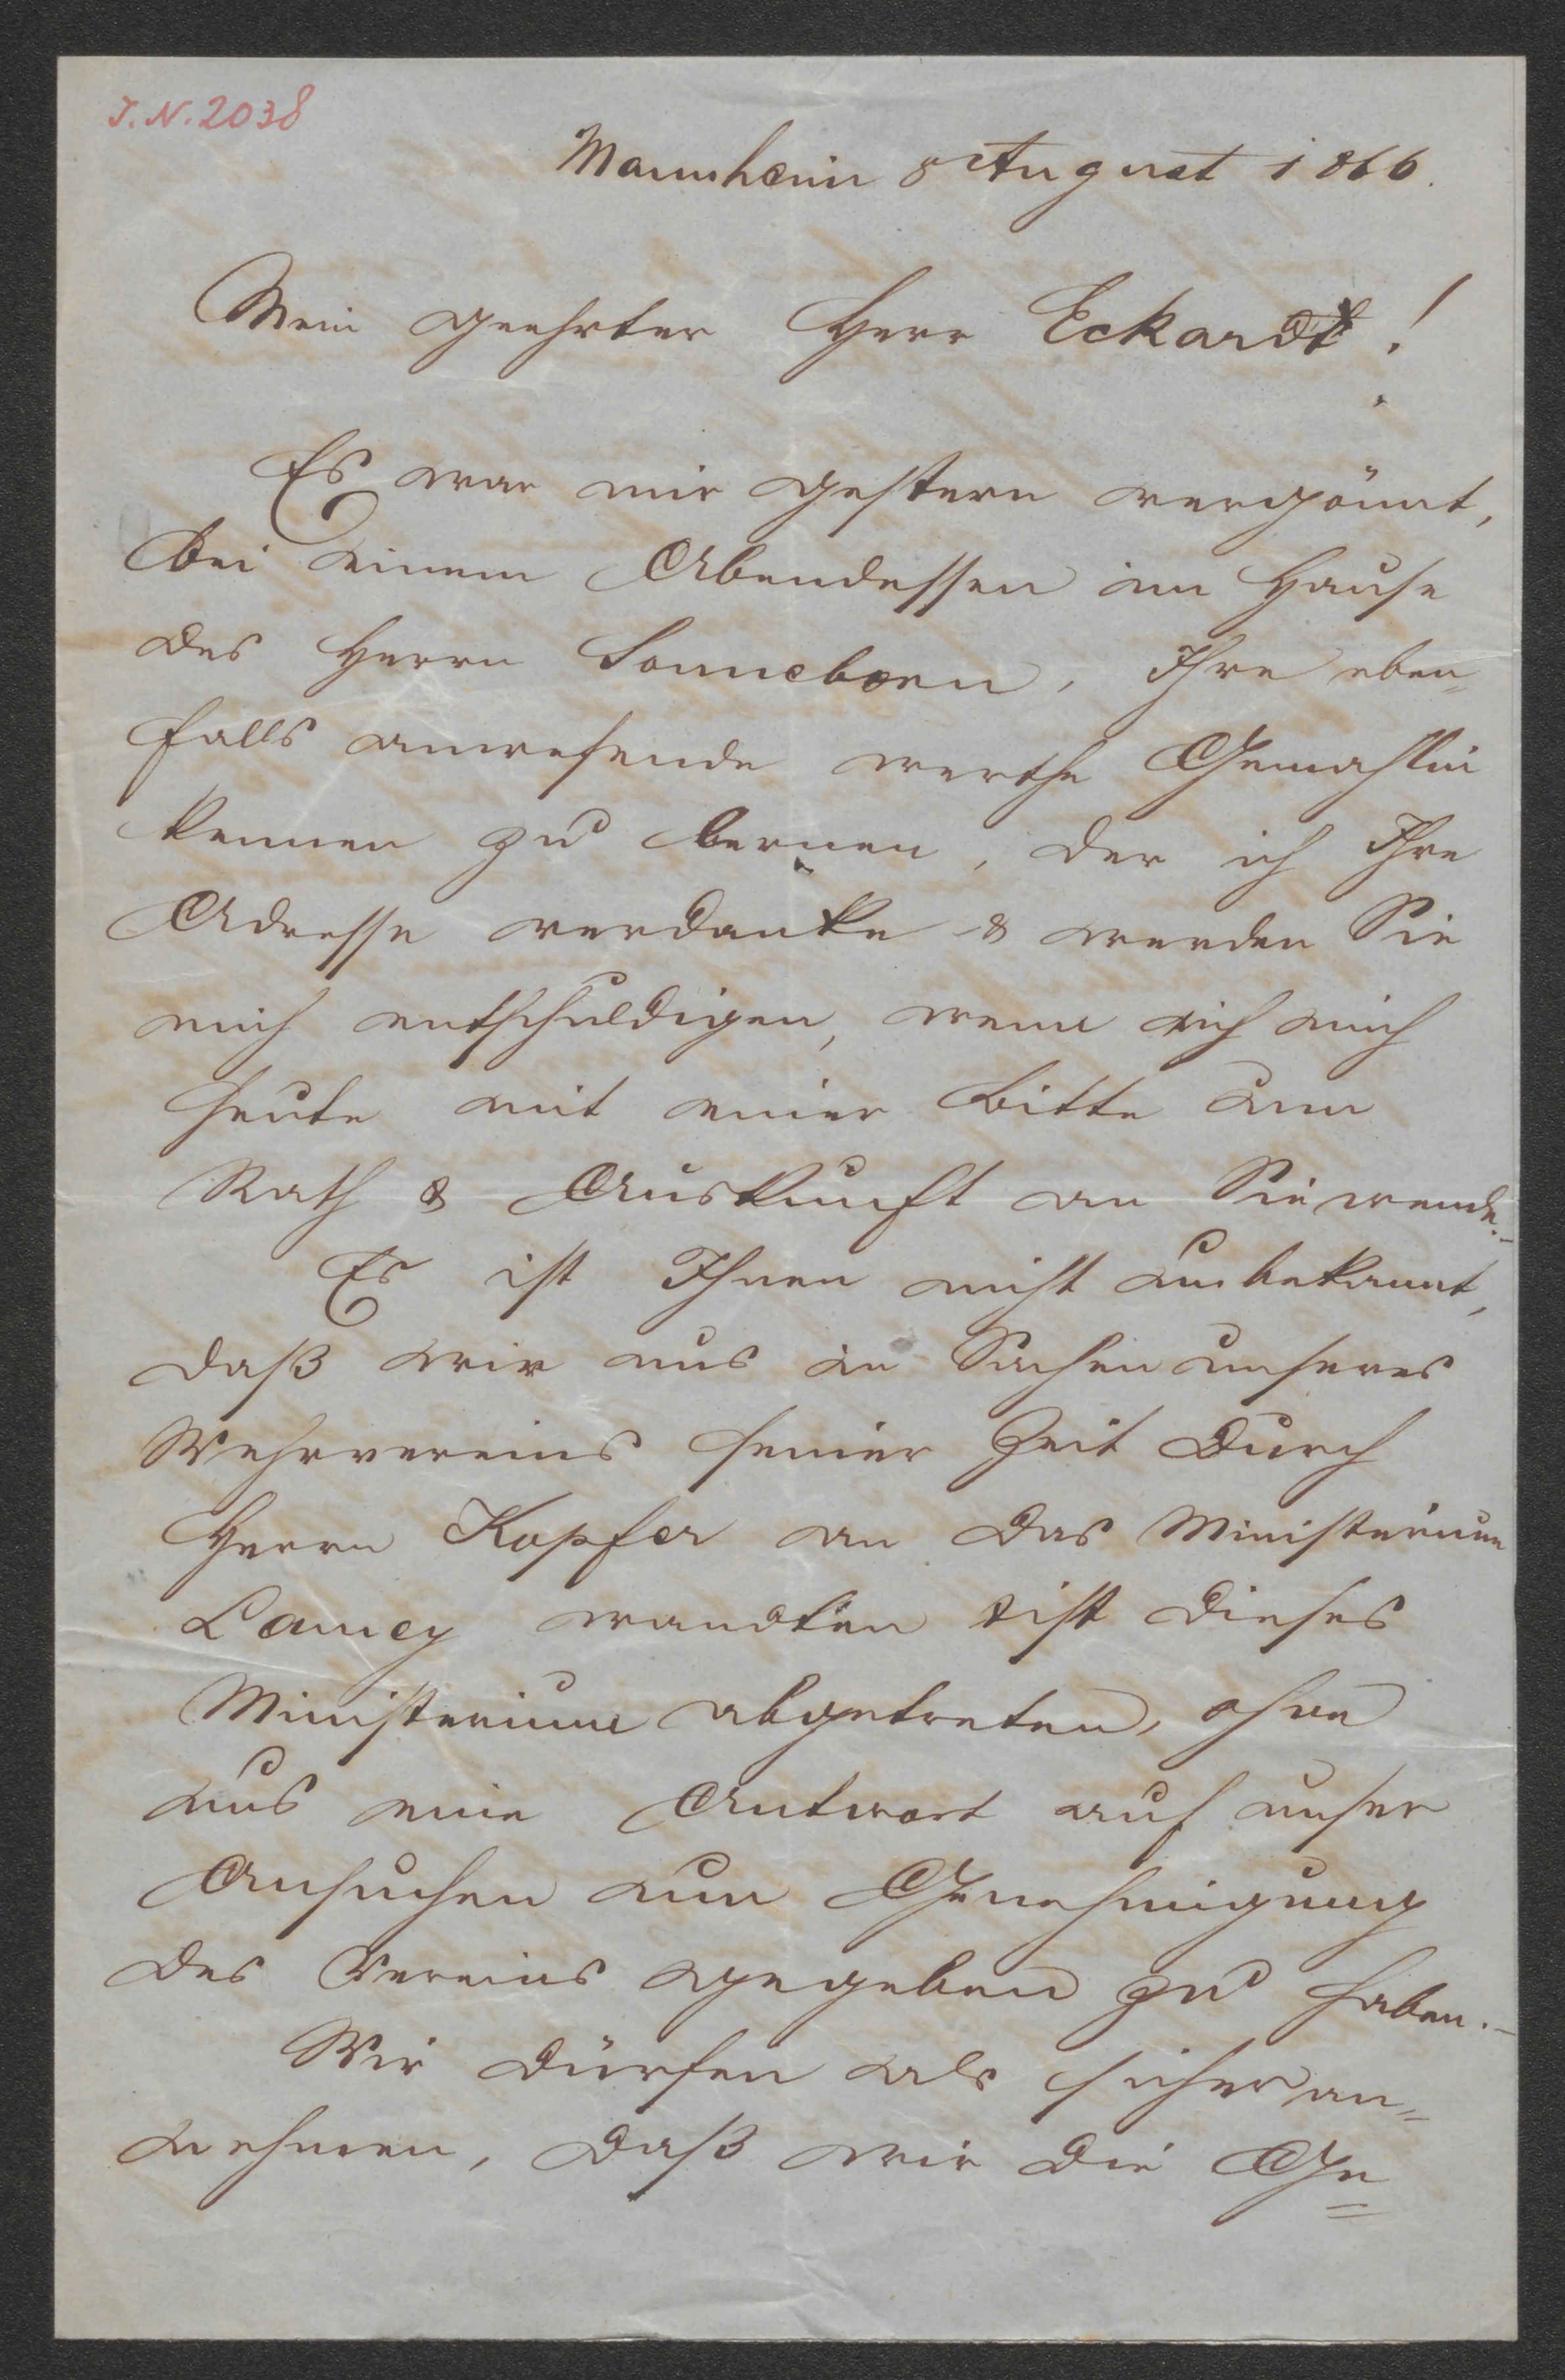 J.N. 2038
Mannheim 8 August 1866.
Mein geehrter Herr Eckardt!
Es war mir gestern vergönnt,
bei einem Abendessen im Hause
des Herrn Sonneborn, Ihre eben=
falls anwesende werthe Gemahlin
kennen zu lernen, der ich Ihre
Adresse verdanke & werden Sie
mich entschuldigen, wenn ich mich
heute mit einer Bitte um
Rath & Auskunft an Sie wende.-
Es ist Ihnen nicht unbekannt,
daß wir uns in Sachen unseres
Wehrvereins seiner Zeit durch
Herrn Kopfer an das Ministerium
Lamey wandten & ist dieses
Ministerium abgetreten, ohne
uns eine Antwort auf unser
Ansuchen um Genehmigung
des Vereins gegeben zu haben.-
Wir dürfen als sicher an=
nehmen, daß wir die Ge=